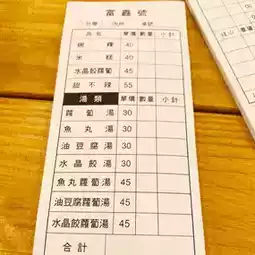 富鑫號
台灣 內用 桌號
品名 單價 數量 小計
碗粿 40
米糕 40
水晶餃蘿蔔湯 45
甜不辣 55
湯類 單價 數量 小計
蘿蔔湯 30
魚丸湯 30
油豆腐湯 30
水晶餃湯 30
魚丸蘿蔔湯 45
油豆腐蘿蔔湯 45
水晶餃蘿蔔湯 45
合計